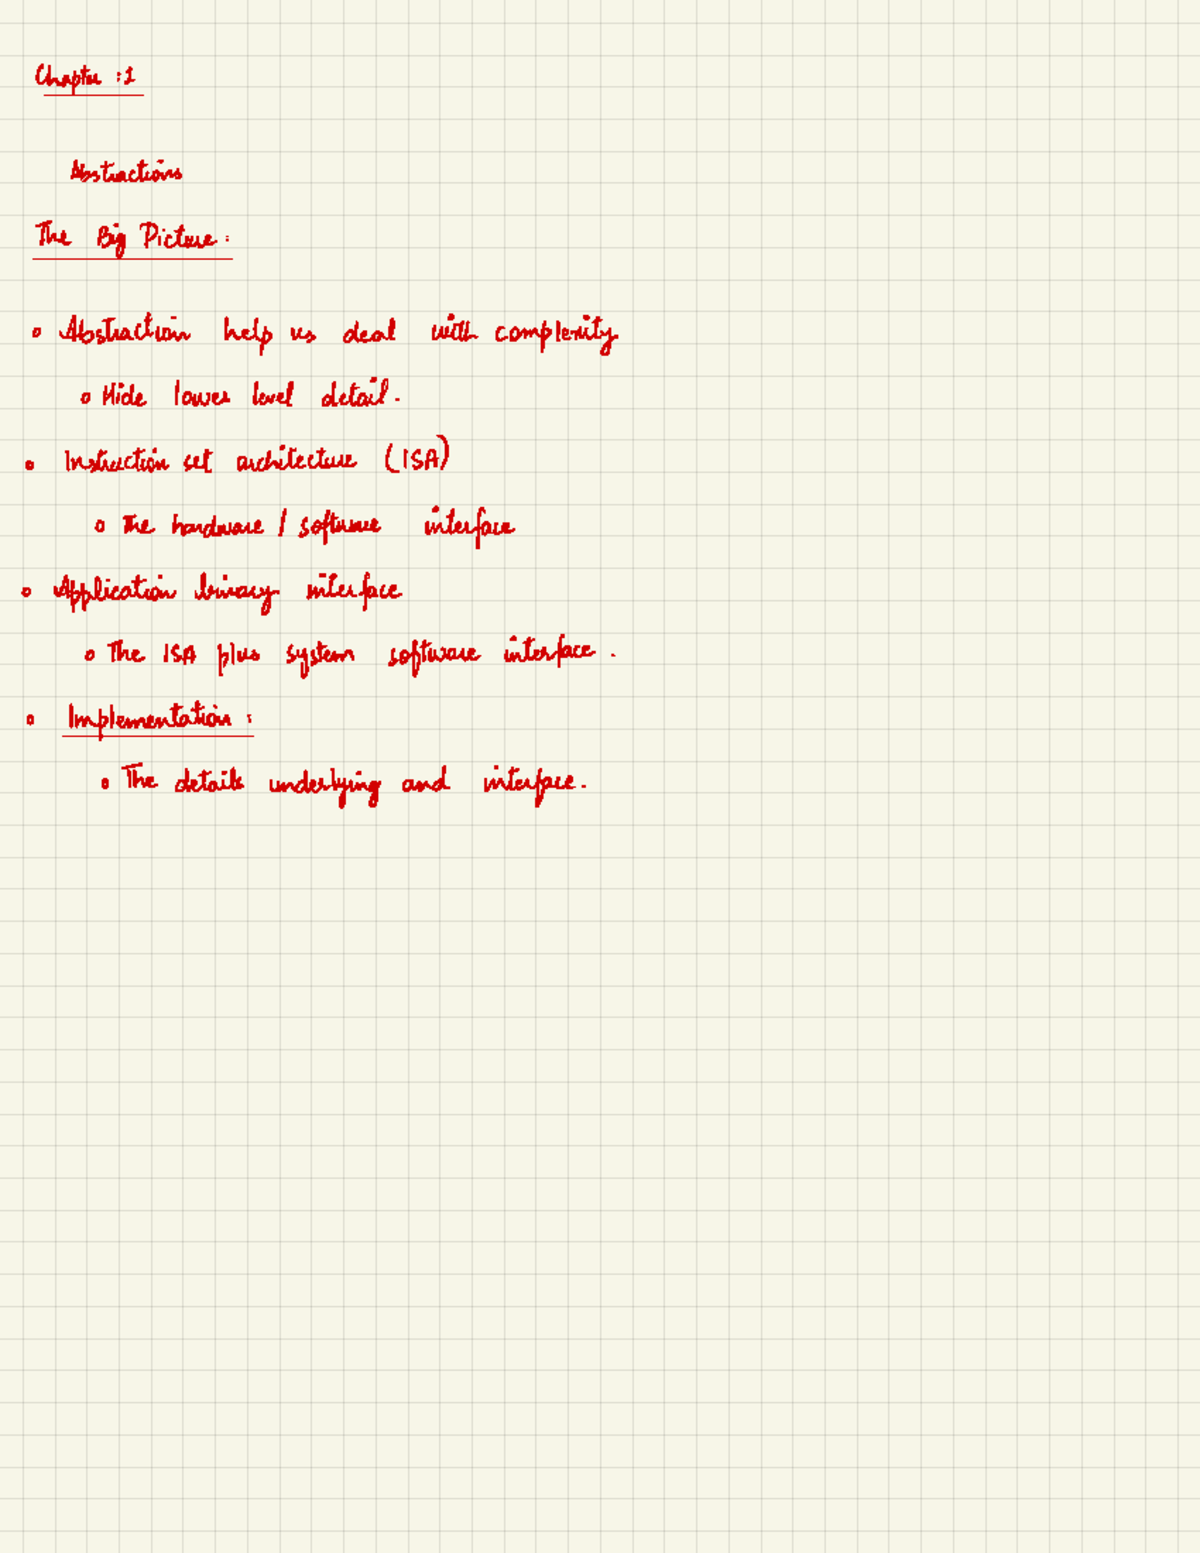 Chapter : 1
Abstractions
The Big Picture :
Abstraction help us deal with complexity
Hide lower level detail.
Instruction set architecture (ISA)
The hardware / software interface
Application binary interface
The ISA plus system software interface .
Implementation :
The details underlying and interface.